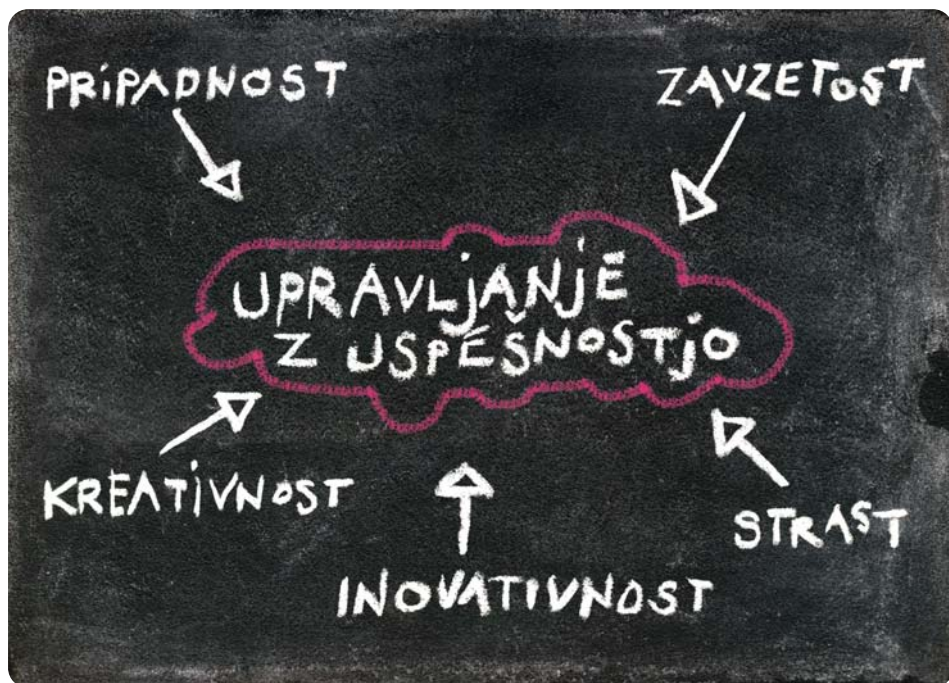 PRIPADNOST
ZAVZETOST
UPRAVLJANJE
Z USPEŠNOSTJO
KREATIVNOST
STRAST
INOVATIVNOST